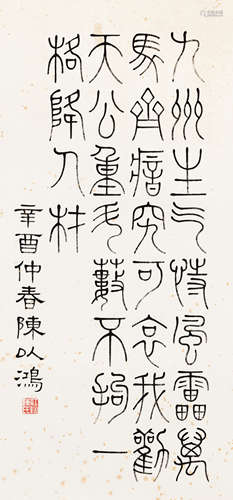 九州生气恃風靁萬
馬齊瘖究可哀我勸
天公重斗藪不拘一
格降人材
辛酉仲春陳以鴻